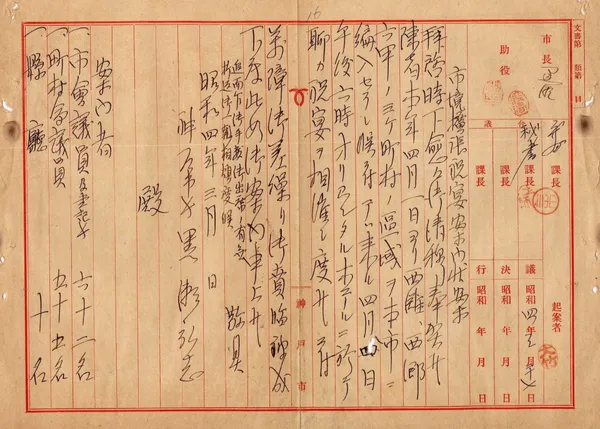 文書第 類第 目
市長
助役
課長
秘書課長
議
課長
起案者
議 昭和四年 月 日
決 昭和 年 月 日
行 昭和 年 月 日
市境拡張祝宴案内状案
拝啓時下愈々御清穆ノ奉賀候
陳者本年四月一日ヨリ西灘、西郷
六甲ノ三ヶ町村ノ區域ヲ本市ニ
編入セラレ候ニ付テハ来ル四月四日
午後六時オリエンタルホテルニ於テ
聊カ祝宴ヲ相催シ度候ニ付
萬障御差繰リ御賁臨被成
下度此如御案内申上候
敬具
追而
昭和四年三月 日
神戸市長 黒瀬弘志
殿
案内者
一、市會議員及
六十二名
一、町村會議員 五十五名
一、縣廳 十名
神戸市